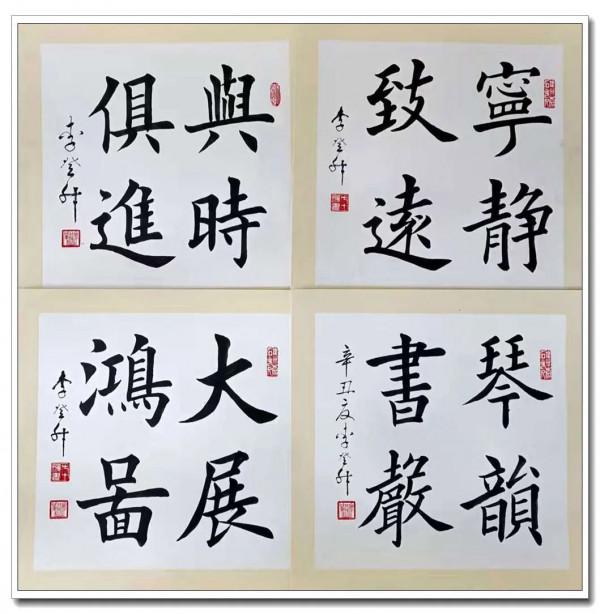 與時
俱進
李登升
寧静
致遠
李登升
大展
鴻啚
李登升
琴韻
書聲
辛丑夏李登升